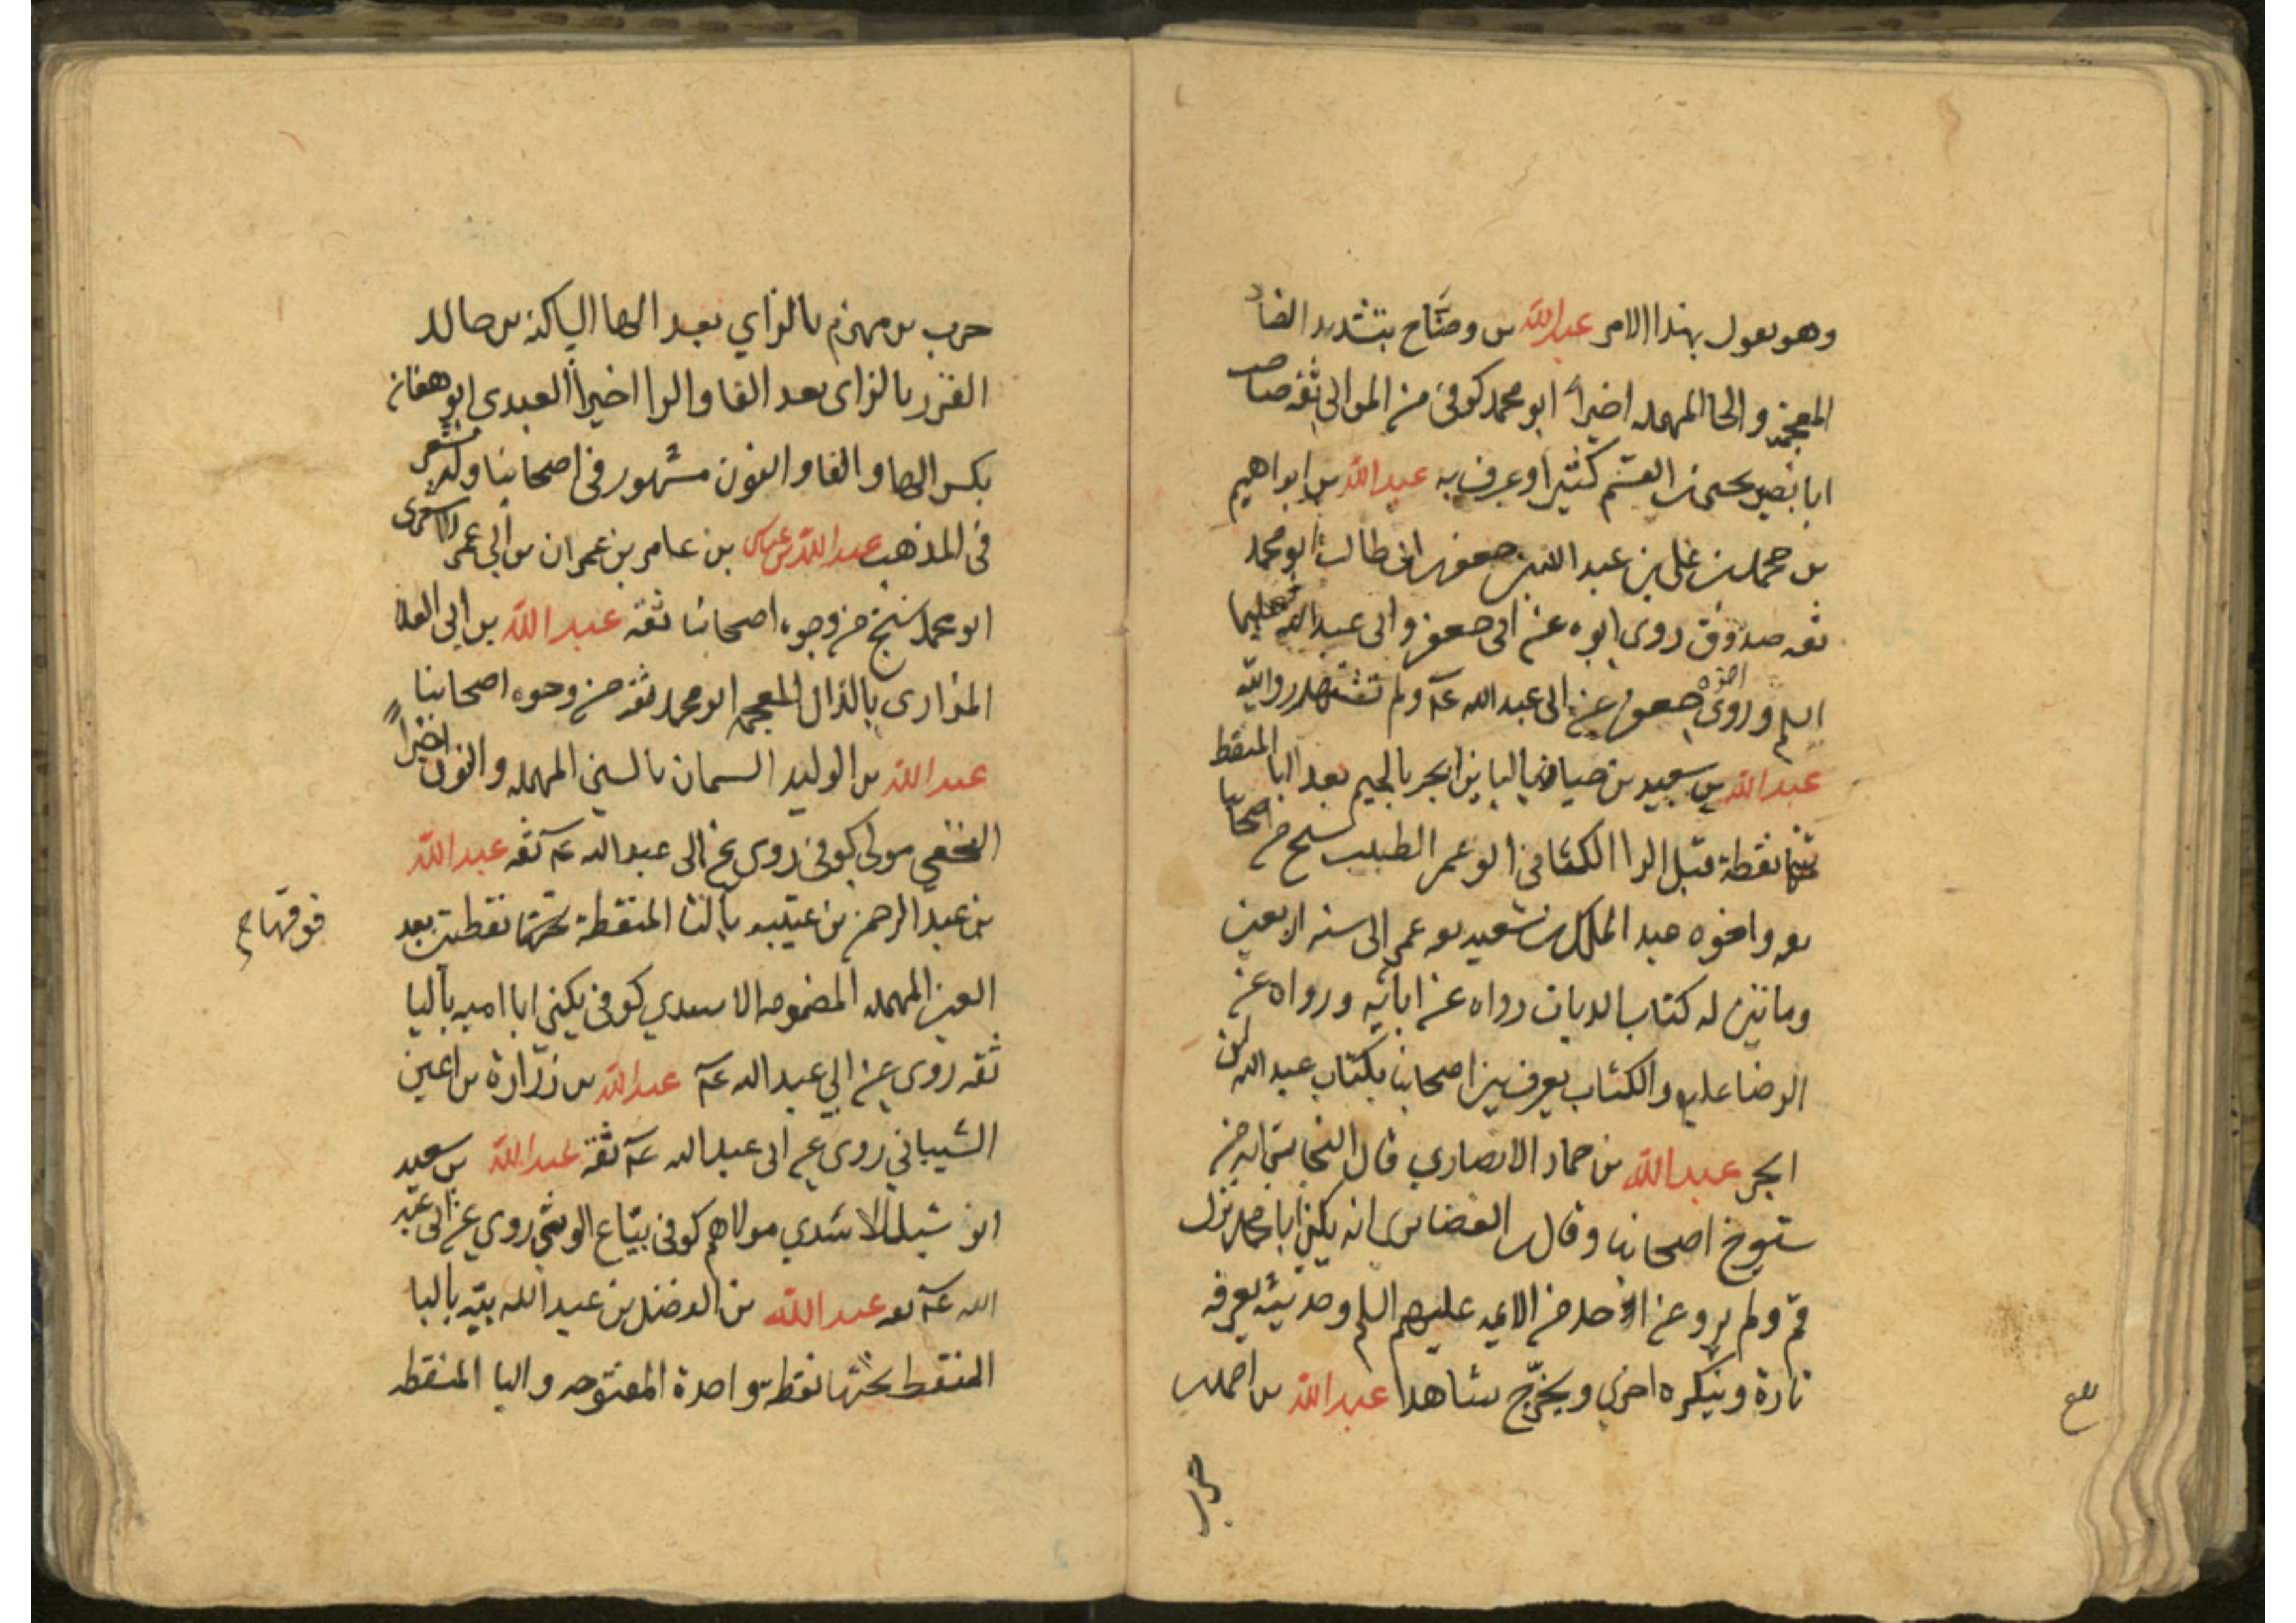 وهو يقول بهذا الامر عبد الله بن وضّاح بتشديد الضاد
المعجمة والحا المهمله اخيراً ابو محمد كوفى من الموالى ثقه صاحب
ابا بصير يحيى بن القسم كثيرا وعرف به عبد الله بن ابراهيم
بن محمد بن على بن عبد الله بن جعفر بن ابى طالب ابو محمد
ثقه صدوق روى ابوه عن ابى جعفر وابى عبد الله عليهما
السلم وروى اخوه جعفر عن ابى عبد الله عَم ولم تشتهر روايته
عبد الله بن سعيد بن حيان باليا بن ابجر بالجيم بعد البا المنقط
تحتها نقطة قبل الرا الكنانى ابو عمر الطبيب شيخ من اصحابنا
ثقه واخوه عبد الملك بن سعيد ثقه عمر الى سنه اربعين
وماتين له كتاب الديات رواه عن ابائه ورواه عن
الرضا عليه والكتاب يعرف بين اصحابنا بكتاب عبد الله بن
ابجر عبد الله بن حماد الانصاري قال النجاشى انه من
شيوخ اصحابنا وقال بن الغضايرى انه يكنى ابا محمد نزل
قم ولم يرو عن احد من الائمه عليهم السلم وحديثه يعرفه
تارة وينكره اخرى ويخرّج شاهدا عبد الله بن احمد بن
حرب
حرب بن مهزم بالزاي بعد الها الساكنه بن خالد
الفزر بالزاى بعد الفا والرا اخيراً العبدي ابو هفان
بكسر الها والفا والنون مشهور فى اصحابنا وله شعر
فى المذهب عبد الله بن عباس بن عامر بن عمران بن ابي عمر الاشعرى
ابو محمد شيخ من وجوه اصحابنا ثقه عبد الله بن ابى العلا
المذارى بالذال المعجمه ابو محمد ثقه من وجوه اصحابنا
عبد الله بن الوليد السمان بالسين المهمله والنون اخيراً
النخعى مولى كوفى روى عن ابى عبد الله عَم ثقه عبد الله
بن عبد الرحمن بن عتيبه بالتا المنقطة تحتها نقطتين بعد
فوقها ح
العين المهمله المضمومه الاسدي كوفى يكنى ابا اميه باليا
ثقه روى عن ابي عبد الله عَم عبد الله بن زرارة بن اعين
الشيباني روى عن ابى عبد الله عَم ثقه عبد الله بن سعيد
ابو شبل الاسدي مولاهم كوفى بيّاع الوشي روي عن ابى عبد
الله عَم ثقه عبد الله بن الفضل بن عبد الله ببّه بالبا
المنقط تحتها نقطة واحدة المفتوحه والبا المنقطه